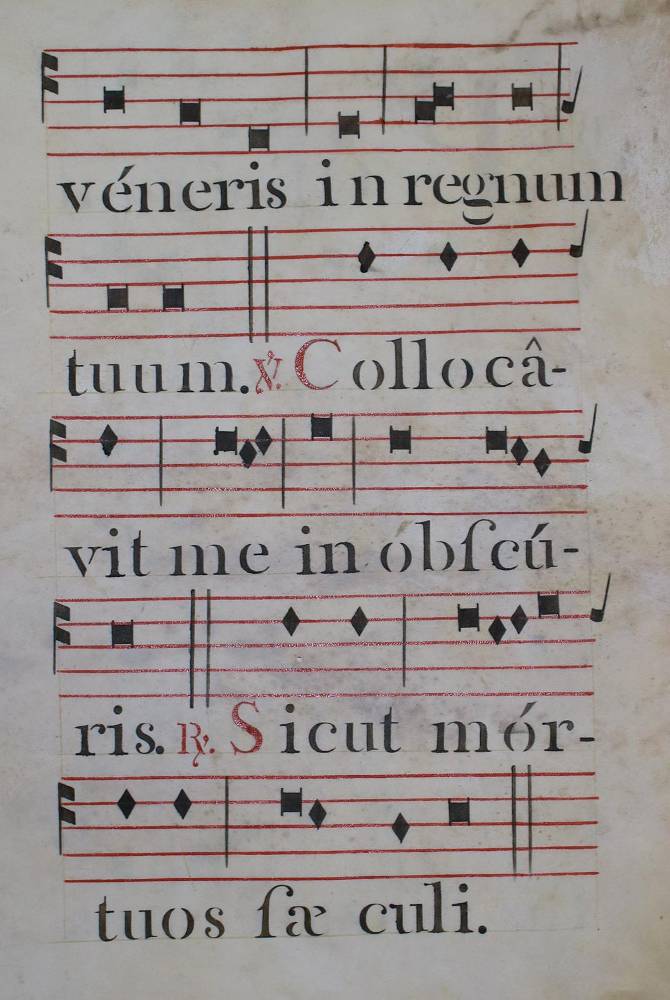 véneris in regnum
tuum. ℣. Collocâ-
vit me in óbſcú-
ris. ℟. Sicut mór-
tuos ſæculi.